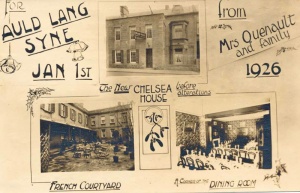 FOR
AULD LANG
SYNE
JAN 1ST
from
Mrs Quenault
and family
1926
The New CHELSEA
HOUSE
before
alterations
FRENCH COURTYARD
A CORNER OF THE DINING ROOM